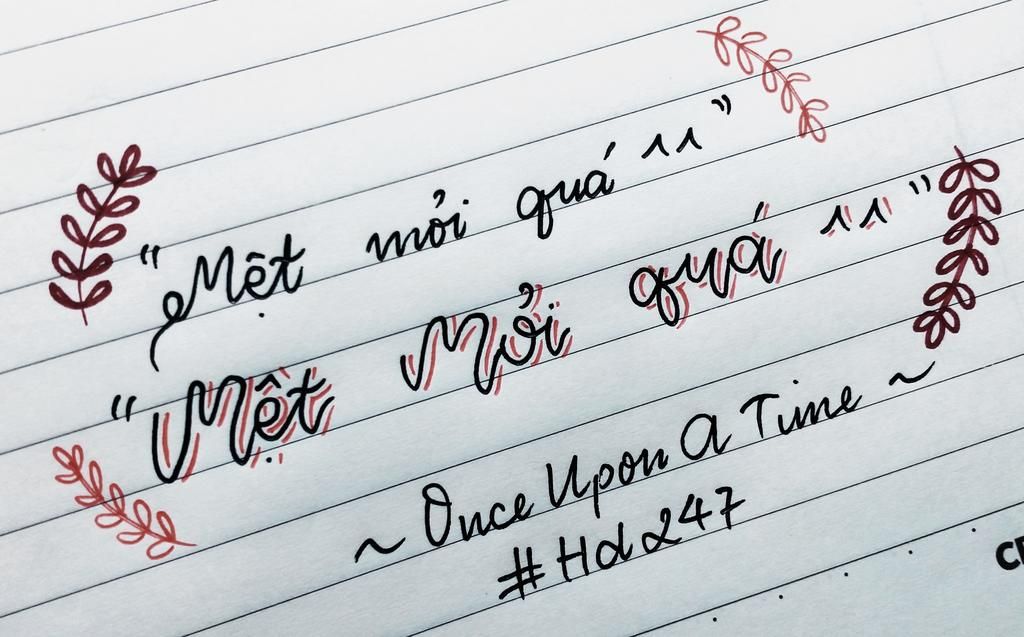 "Mệt mỏi quá ^^"
"Mệt Mỏi quá ^^"
~ Once Upon A Time ~
#Hd247